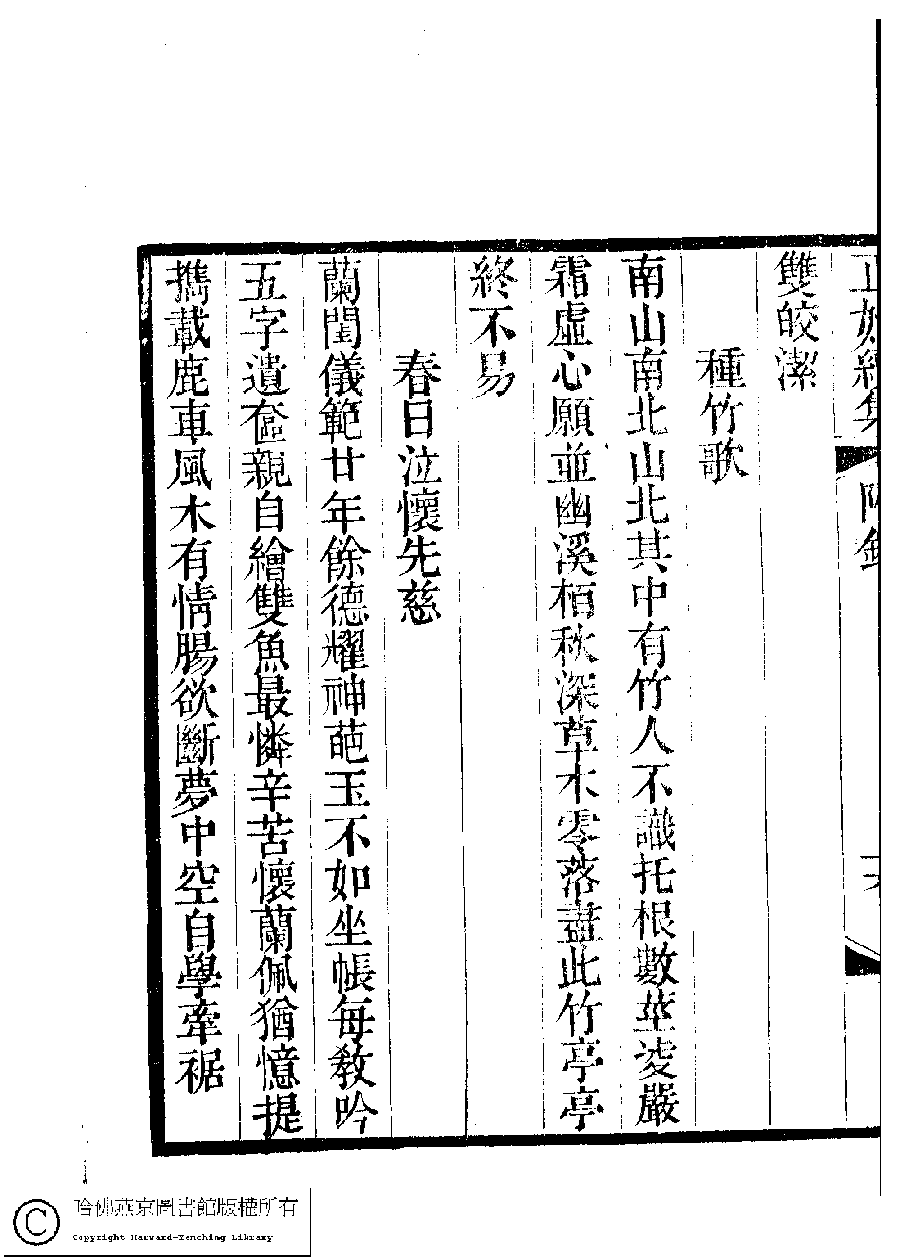 正始續集 附錄
雙皎潔
種竹歌
南山南北山北其中有竹人不識托根數莖凌嚴
霜虛心願並幽溪栢秋深草木零落盡此竹亭亭
終不易
春日泣懷先慈
蘭閨儀範廿年餘德耀神葩玉不如坐帳每教吟
五字遺奩親自繪雙魚最憐辛苦懷蘭佩猶憶提
攜載鹿車風木有情腸欲斷夢中空自學牽裾
哈佛燕京圖書館版權所有
Copyright Harvard-Yenching Library